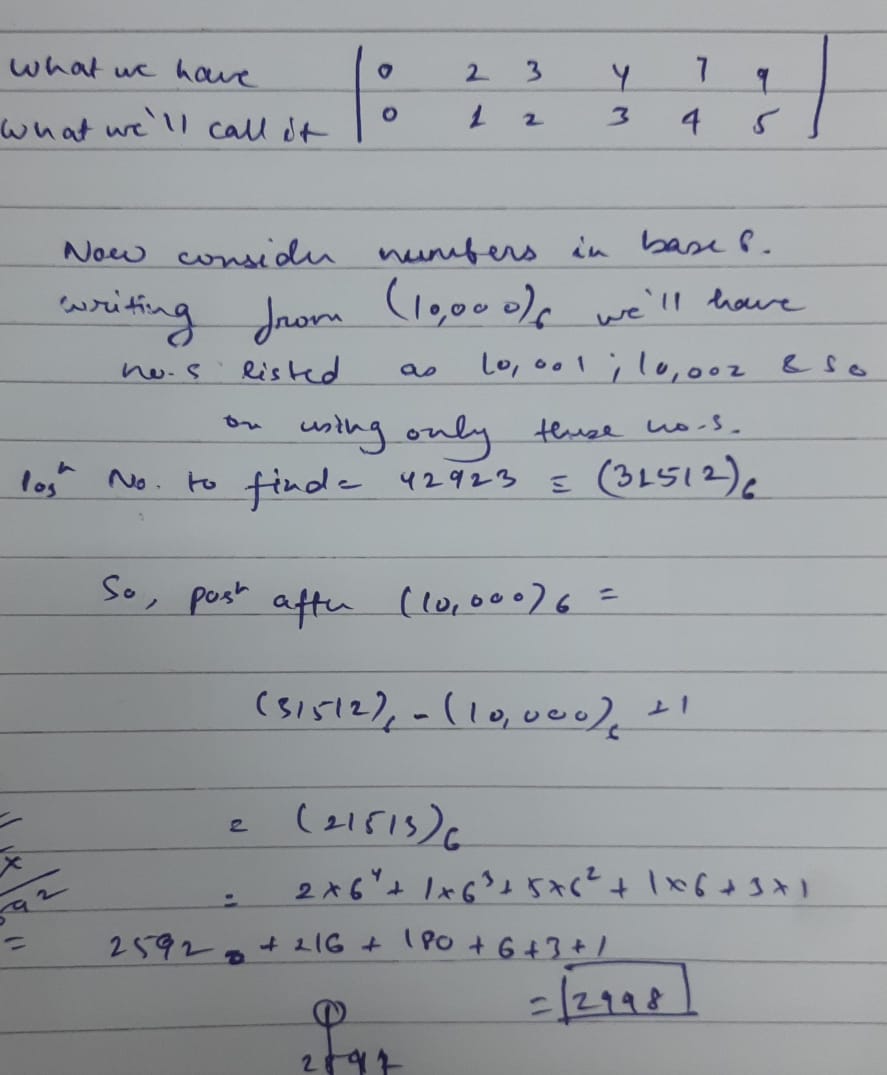 What we have | 0 2 3 4 7 9 |
What we'll call it | 0 1 2 3 4 5 |
Now consider numbers in base 6.
writing from (10,000)6 we'll have
no.s listed as 10,001 ; 10,002 & so
on using only these no.s.
No. to find = 42923 ≡ (31512)6
So, posn after (10,000)6 =
(31512)6 - (10,000)6 + 1
= (21513)6
= 2×6⁴ + 1×6³ + 5×6² + 1×6 + 3×1
= 2592 + 216 + 180 + 6+3+1
= 2998